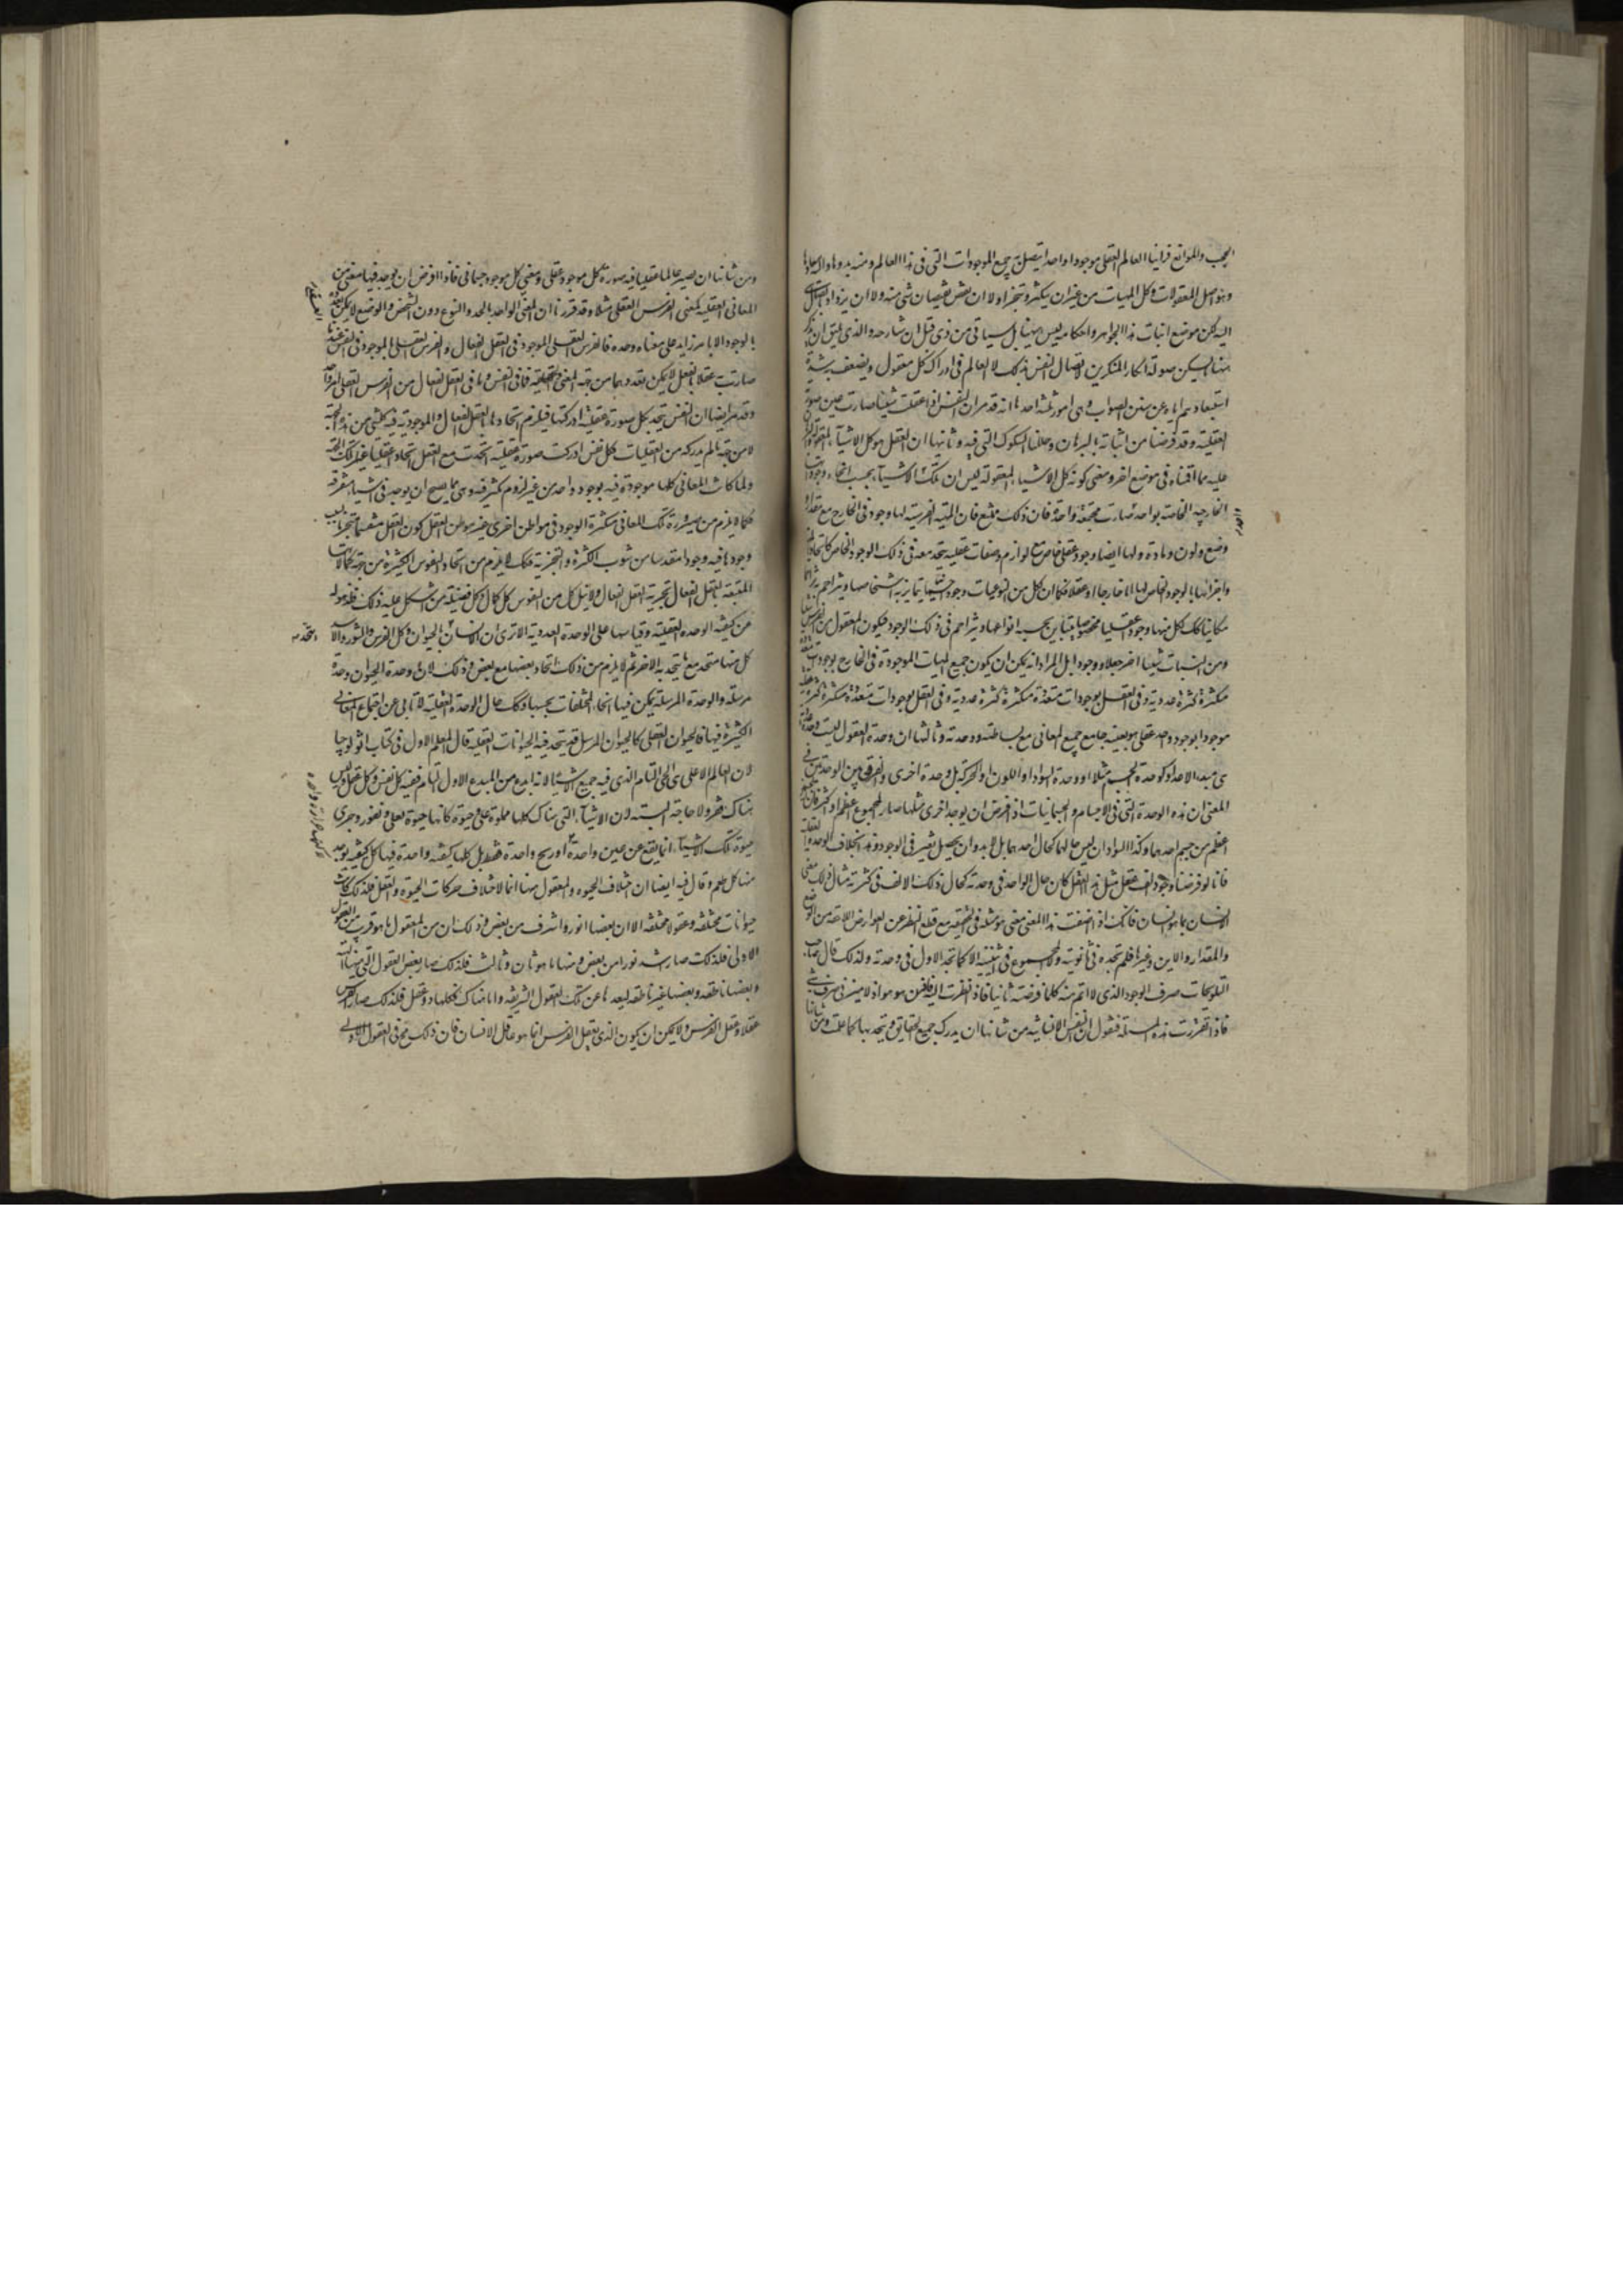 الحجب والموانع فرأينا العالم العقلي موجودا واحدا يتصل به جميع الموجودات التي في هذا العالم ومنه بدوها واليه معادها
وهو اصل المعقولات وكل المهيات من غير ان يتكثر ويتجزا ولا ان ينقص بفيضان شي منه ولا ان يزداد باتصال شي
اليه لكن موضع اثبات هذا الجوهر واحكامه ليس ههنا بل سياتي من ذي قبل ان شاء الله وحده والذي يليق ان يذكر
ههنا ليسكن صولة انكار المنكرين لاتصال النفس بذلك العالم في ادراك كل معقول ويضعف به شدة
استبعادهم اياه عن سنن الصواب هي امور ثلثة احدها انه قد مر ان النفس اذا عقلت شيئا صارت عين صورته
العقلية وقد فرضنا من اثباته بالبرهان وحللنا الشكوك التي فيه وثانيها ان العقل هو كل الاشياء المعقولة والبرهان
عليه مما اقمناه في موضع اخر ومعنى كونه كل الاشياء المعقولة ليس ان تلك الاشياء بحسب انحاء وجوداتها
الخارجيه الخاصة بواحد صارت مجتمعة واحدة فان ذلك ممتنع فان المهية الفرسية لها وجود في الخارج مع مقدار
وضع ولون ومادة ولها ايضا وجود عقلي خاص مع لوازم وصفات عقلية يتحد معه في ذلك الوجود الخاص كاتحاد
واجزائها بالوجود الخاص لها اما خارجا او عقلا فكما ان لكل من النوعيات وجود حسيا يتمايز به اشخاصها ويتزاحم تزاحما
مكانيا كك لكل منها وجود عقليا مخصوصا يتباين بحسبه انواعها ويتزاحم في ذلك الوجود فيكون المعقول من الفرس شيئا
ومن النبات شيئا اخر جعلا ووجودا بل المراد انه يمكن ان يكون جميع المهيات الموجودة في الخارج بوجودات متعددة
متكثرة كثرة عددية وفي العقل بوجودات متعددة متكثرة كثرة عقلية
موجودا بوجود واحد عقلي هو بعينه جامع جميع المعاني مع بساطته ووحدته وثالثها ان وحدة العقول ليست وحدة عددية
هي مبدء الاعداد كوحدة الجسم مثلا او وحدة السواد او اللون او الحركة بل وحدة اخرى والفرق بين الوحدتين في
المعنى ان هذه الوحدة التي في الاجسام والجسمانيات اذا فرض ان يوجد اخرى مثلها صار المجموع اعظم او اكثر فان الجسمين
اعظم من جسم احدهما وكذا السوادان ليس حالهما كحال احدهما بل لابد وان يحصل تغير في الوجود وهذه بخلاف الوحدة العقلية
فانا لو فرضنا وجود الف عقل مثل هذا العقل لكان حال الواحد في وحدته كحال ذلك الالف في كثرته مثال ذلك معنى
الانسان بما هو انسان فانك اذا اضفت الى هذا المعنى معنى هو مثله في الحقيقة مع قطع النظر عن العوارض اللاحقة من الوضع
والمقدار والاين وغيرها فلم تجده في ثانويته ولا المجموع في اثنينيته الا كما تجد الاول في وحدته ولذلك قال صاحب
التلويحات صرف الوجود الذي لا اتم منه كلما فرضته ثانيا فاذا نظرت اليه فاذن هو هو اذ لا ميز في صرف شي
فاذا تقررت هذه المسئلة فنقول النفس الانسانية من شانها ان يدرك جميع الحقايق ويتحد بها كما علمت ومن شانها
ومن شانها ان يصير عالما عقليا فيه صورة كل موجود عقلي ومعني كل موجود جسماني فاذا فرض ان يوجد فيها معنى من
المعاني العقلية كمعنى الفرس العقلي مثلا وقد قررنا ان المعنى الواحد بالحد والنوع دون التشخص والوضع لا يمكن تعدده
بالوجود الا بامر زايد على معناه وحده فالفرس العقلي الموجود في العقل الفعال والفرس العقلي الموجود في النفس عند ما
صارت عقلا بالفعل لا يمكن تعددهما من جهة المعنى والحقيقة فما في النفس وما في العقل الفعال من الفرس العقلي امر واحد
وقد مر ايضا ان النفس يتحد بكل صورة عقلية ادركتها فيلزم اتحادها بالعقل الفعال الموجود فيه كل شي من هذه الجهة
لا من جهة ما لم يدركه من العقليات فكل نفس ادركت صورة عقلية اتحدت مع العقل اتحادا عقليا من تلك الجهة
ولما كانت المعاني كلها موجودة فيه بوجود واحد من غير لزوم تكثر فيه وهي مما يصح ان يوجد في اشياء متفرقة
فكما لا يلزم من صيرورة تلك المعاني متكثرة الوجود في مواطن اخرى غير موطن العقل كون العقل منقسما متجزيا بسبب
وجودها فيه وجودا مقدسا من شوب الكثرة والتجزية فكك لا يلزم من اتحاد النفوس الكثيرة من جهة كمالاتها
المتفقة بالعقل الفعال تجزية العقل الفعال ولا نيل كل من النفوس كل كمال وكل فضيلة من اشكل عليه ذلك فلذهوله
عن كيفية الوحدة العقلية وقياسها على الوحدة العددية الا ترى ان الانسان يتحد بالحيوان وكل الفرس والثور والاسد
كل منها متحد مع ما يتحد به الاخر ثم لا يلزم من ذلك اتحاد بعضها مع بعض وذلك لان وحدة الحيوان وحدة
مرسلة والوحدة المرسلة يمكن فيها اتحاد المختلفات بحسبها وكك حال الوحدة العقلية لا تابى عن اجتماع المعاني
الكثيرة فيها فالحيوان العقلي كالحيوان المرسل قد يتحد فيه الحيوانات العقلية قال المعلم الاول في كتاب اثولوجيا
لان العالم الاعلى هي الحي التام الذي فيه جميع الاشياء لانه ابدع من المبدع الاول التام ففيه كل نفس وكل عقل وليس
هناك فقر ولا حاجة البتة لان الاشياء التي هناك كلها مملوة غنى وحيوة كانها حيوة تغلي وتفور وجري
حيوة تلك الاشياء انما ينبع عن عين واحدة لا كانها حرارة واحدة او ريح واحدة فقط بل كلها كيفية واحدة فيها كل كيفية يوجد
فيها كل طعم وقال فيه ايضا ان اختلاف الحيوة والعقول ههنا انما لاختلاف حركات الحيوة والعقل فلذلك كانت
حيوانات مختلفة وعقول مختلفة الا ان بعضها انور واشرف من بعض وذلك ان من العقول ما هو قريب من العقول
الاولى فلذلك صار اشد نورا من بعض ومنها ما هو ثان وثالث فلذلك صار بعض العقول التي ههنا الهية
وبعضها ناطقه وبعضها غير ناطقه لبعدها عن تلك العقول الشريفة واما هناك فكلها ذو عقل فلذلك صار الفرس
عقلا وعقل الفرس فرس ولا يمكن ان يكون الذي يعقل الفرس انما هو عاقل الانسان فان ذلك محال في العقول الاولى